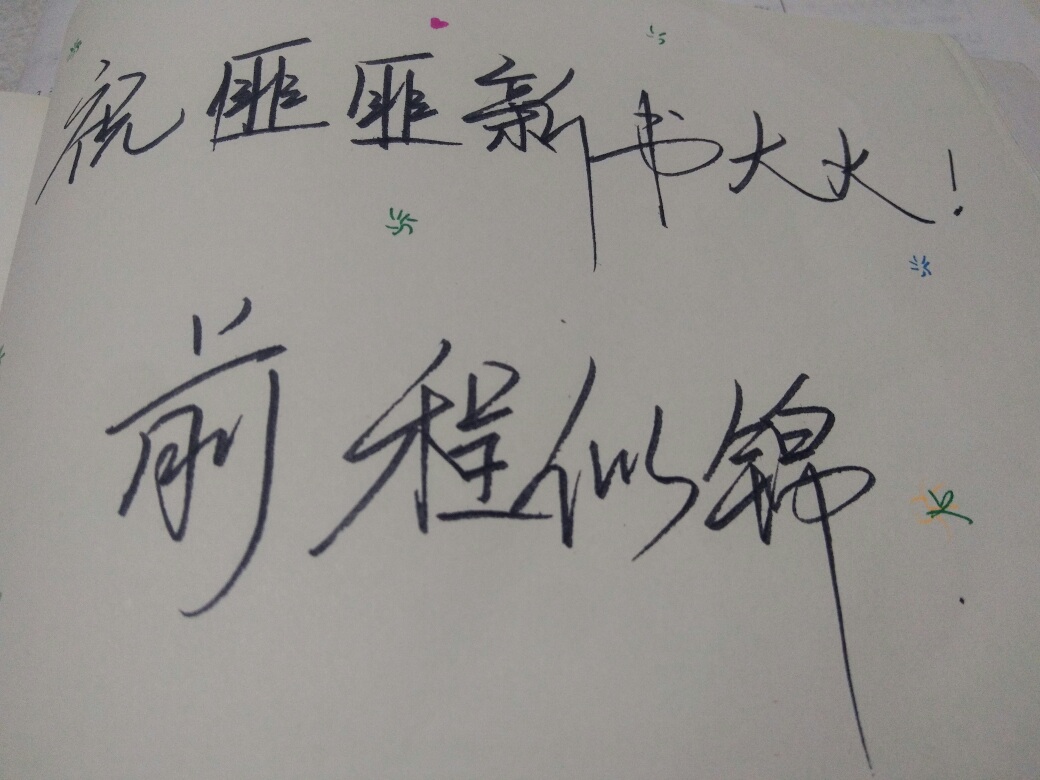 祝匪匪新书大火!
前程似锦